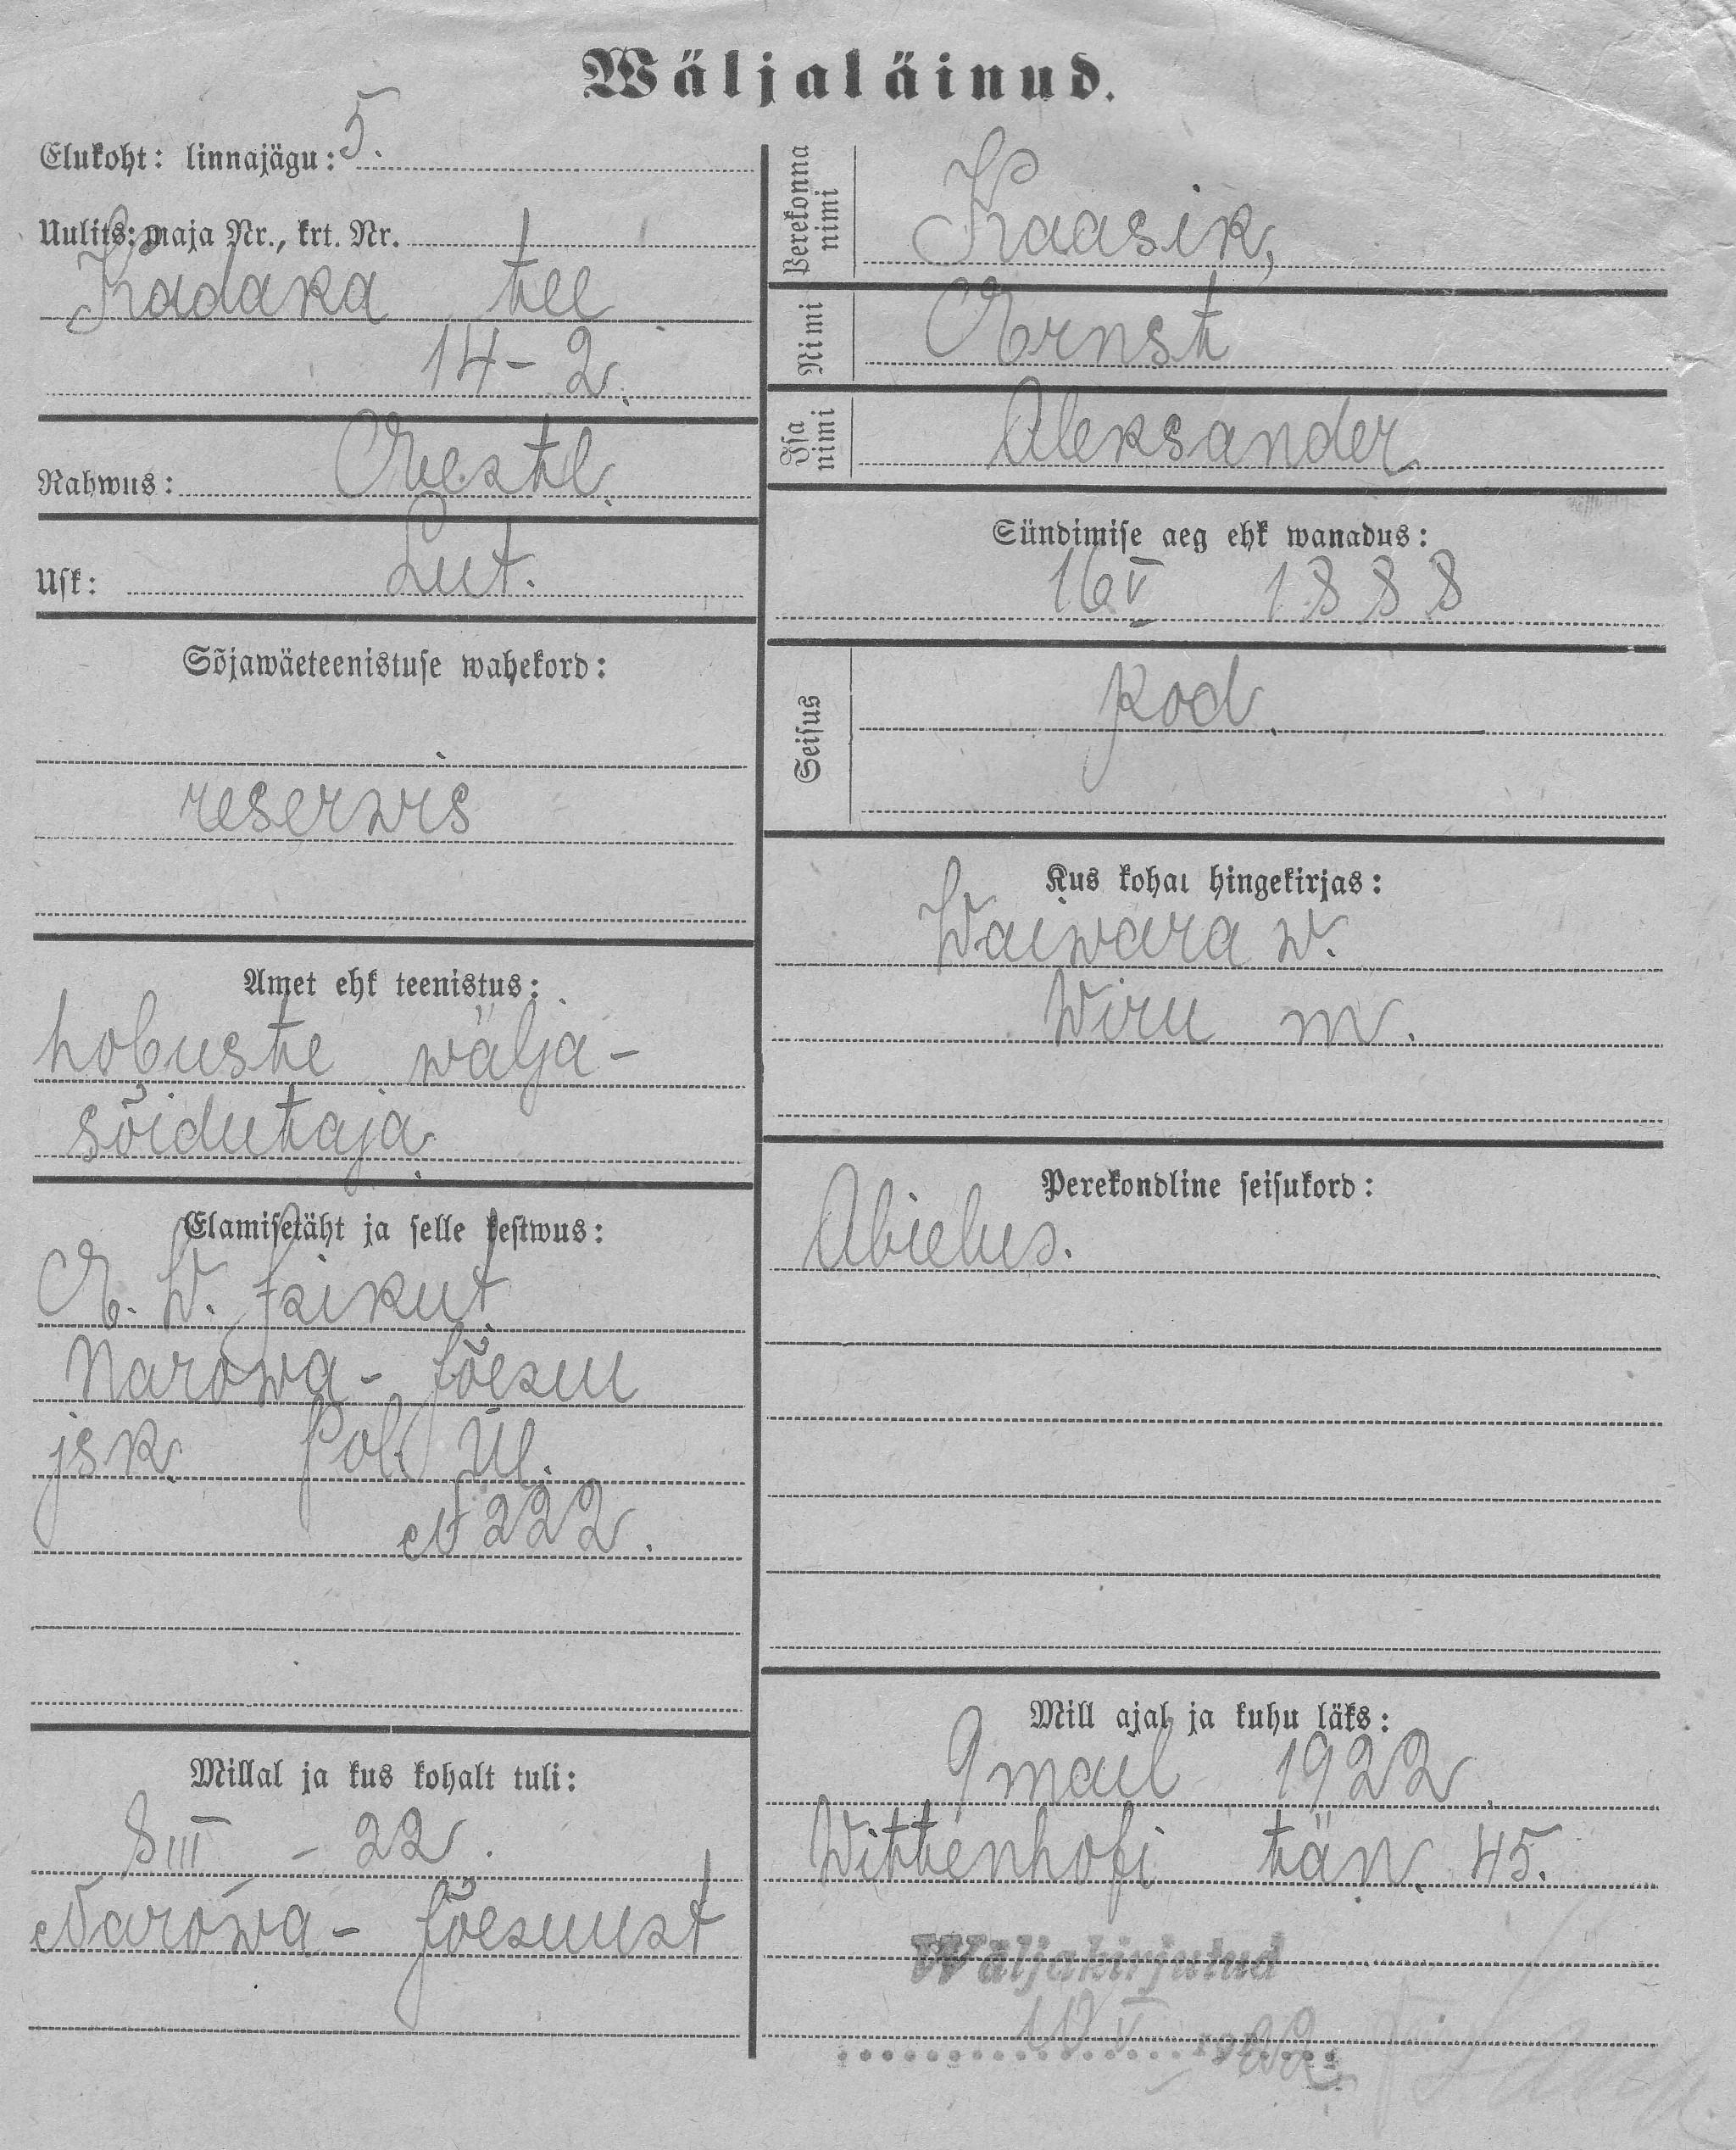 Wäljaläinud.
Elukoht: linnajägu: 5.
Uulits: maja Nr., krt. Nr.
Kadaka tee
14 - 2.
Rahwus: Eestl.
Usk: Lut.
Sõjawäeteenistuse wahekord:
reserwis
Amet ehk teenistus:
hobuste wälja-
sõidutaja.
Elamisetäht ja selle kestwus:
E. W. Isikut.
Narowa-Jõesuu
jsk. Pol. Ül.
№ 222.
Millal ja kus kohalt tuli:
8 III - 22.
Narowa-Jõesuust
Perekonna
nimi
Kaasik,
Nimi
Ernst
Isa
nimi
Aleksander
Sündimise aeg ehk wanadus:
16 V 1888
Seisus
kod.
Kus kohal hingekirjas:
Waiwara w.
Wiru m.
Perekondline seisukord:
Abielus.
Mill ajal ja kuhu läks:
9 mail 1922.
Wittenhofi tän. 45.
Wäljakirjutud
10 V 1922